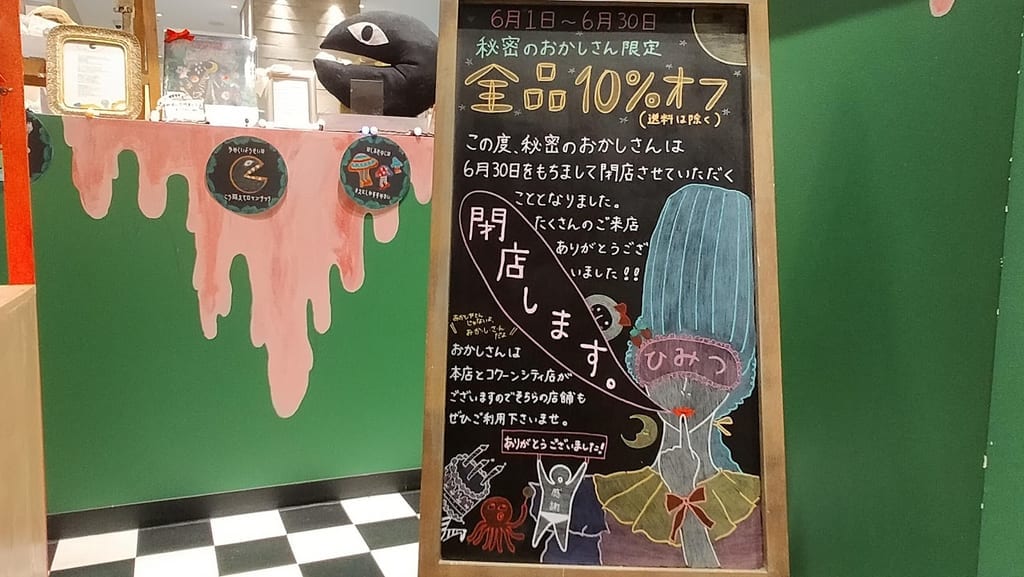 6月1日～6月30日
秘密のおかしさん限定
全品10%オフ
(送料は除く)
この度、秘密のおかしさんは
6月30日をもちまして閉店させていただく
こととなりました。
たくさんのご来店
ありがとうござ
いました!!
閉店します。
ひみつ
おかしさんは
本店とコクーンシティ店が
ございますのでそちらの店舗も
ぜひご利用下さいませ。
ありがとうございました!
感謝